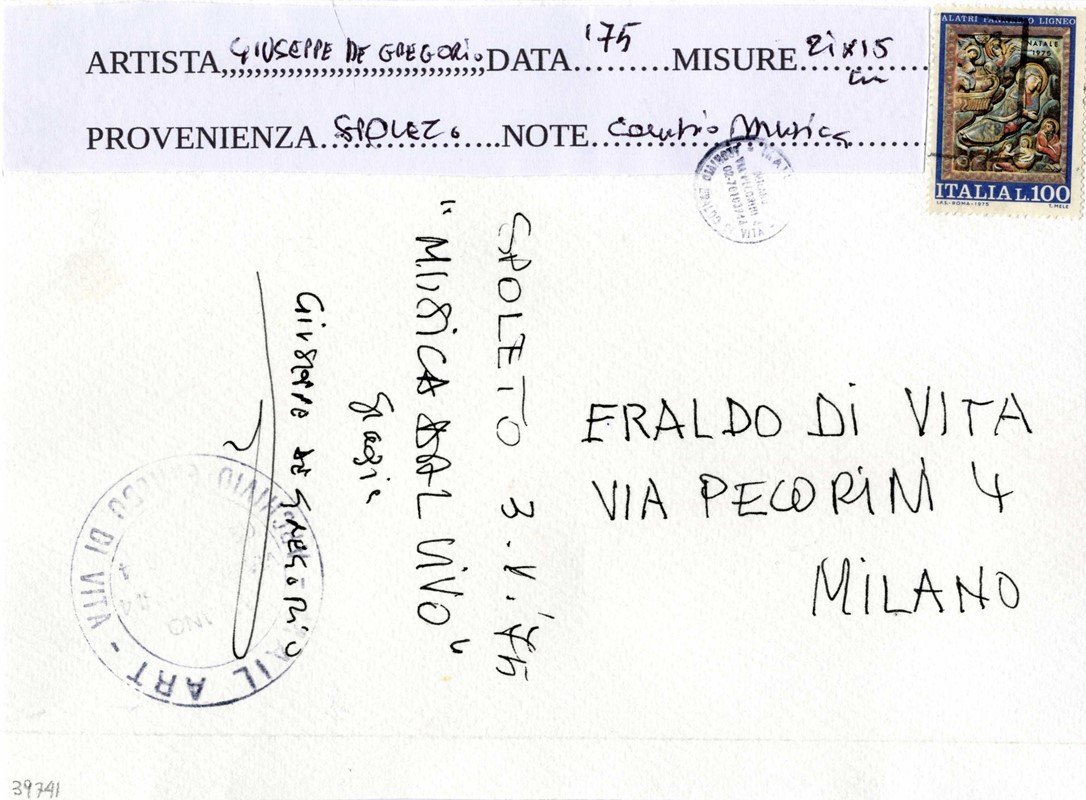 ARTISTA,,,,,,,,,,,,,,,,,,,,,,,,,,,,,,DATA.........MISURE............
GIUSEPPE DE GREGORIO '75 21x15 cm
PROVENIENZA.................NOTE...............................
SPOLETO
ALATRI PANNELLO LIGNEO
NATALE
1975
ITALIA L.100
I.P.S.-ROMA-1975 T. MELE
SPOLETO 3.V.'75
"MUSICA DAL VIVO"
Grazie
GIUSEPPE DE GREGORIO
ERALDO DI VITA
VIA PECORINI 4
MILANO
ARCHIVIO ERALDO DI VITA - MAIL ART
39741